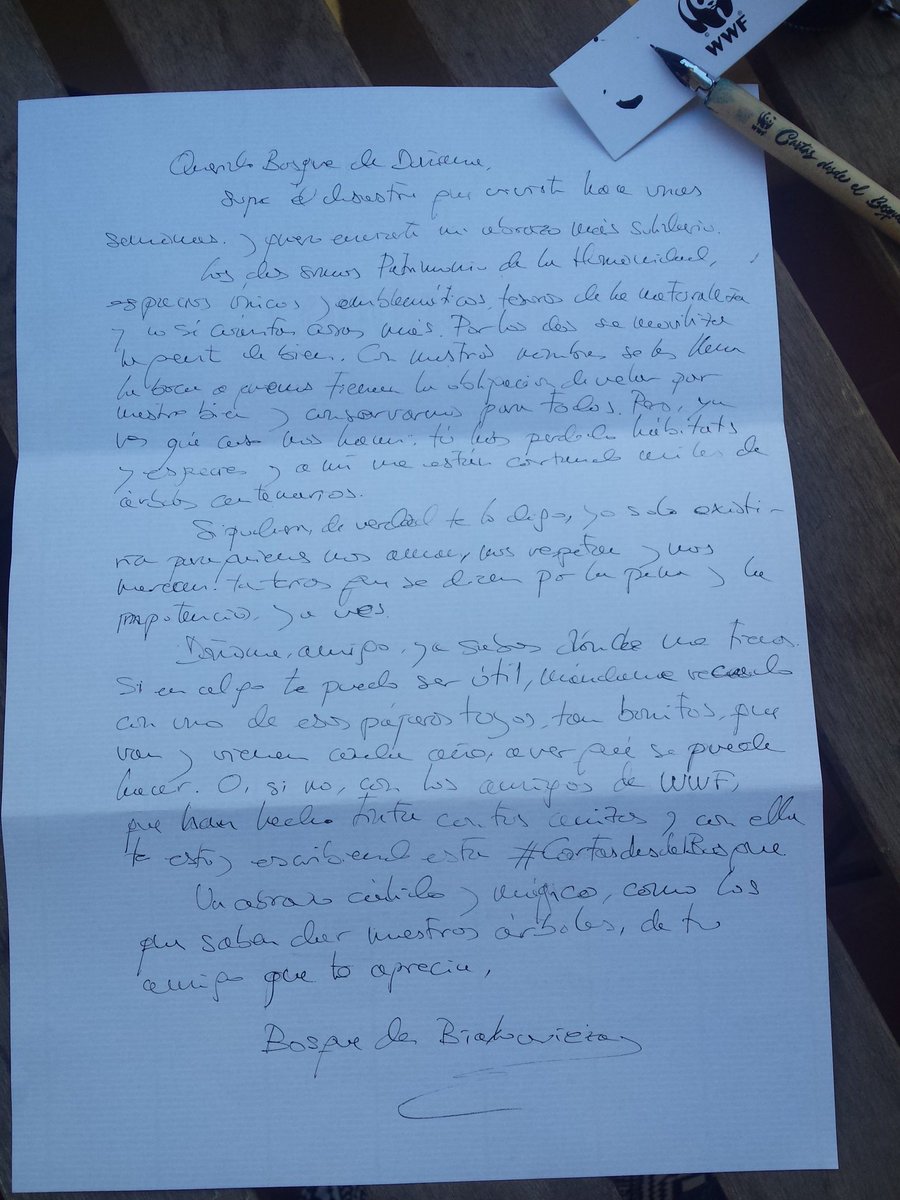 WWF
WWF
Cartas desde el Bosque
Querido Bosque de Doñana,
Supe el desastre que viviste hace unas
semanas. y quiero enviarte mi abrazo más solidario.
Los dos somos Patrimonio de la Humanidad,
espacios únicos y emblemáticos, tesoros de la naturaleza
y no sé cuántas cosas más. Por los dos se moviliza
la gente de bien. Con nuestros nombres se les llena
la boca a quienes tienen la obligación de velar por
nuestro bien y conservarnos para todos. Pero, ya
ves qué caso nos hacen: tú has perdido hábitats
y especies y a mí me están cortando miles de
árboles centenarios.
Si pudiera, de verdad te lo digo, yo solo existi-
ría para quienes nos aman, nos respetan y nos
merecen. tu que se por la pena y la
impotencia, ya ves.
Doñana, amigo, ya sabes dónde me tienes.
Si en algo te puedo ser útil, mándame recado
con uno de esos pájaros tuyos, tan bonitos, que
van y vienen cada año, a ver qué se puede
hacer. O, si no, con los amigos de WWF,
que han hecho tinta con tus cenizas y con ella
te estoy escribiendo esta #CartasdesdelBosque
Un abrazo cálido y mágico, como los
que saben dar nuestros árboles, de tu
amigo que te aprecia,
Bosque de Białowieża